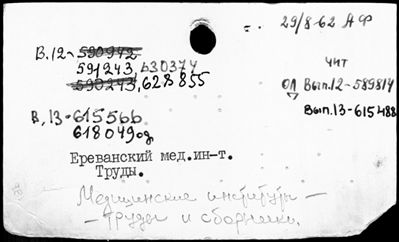 29/8-62 АФ
В.12- 590942
591243, 630374
590243, 628855
чит
ОЛ Вып.12-589814
Вып.13-615488
В.13-615566
618049од
Ереванский мед.ин-т.
Труды.
Медицинские институты -
- труды и сборники.